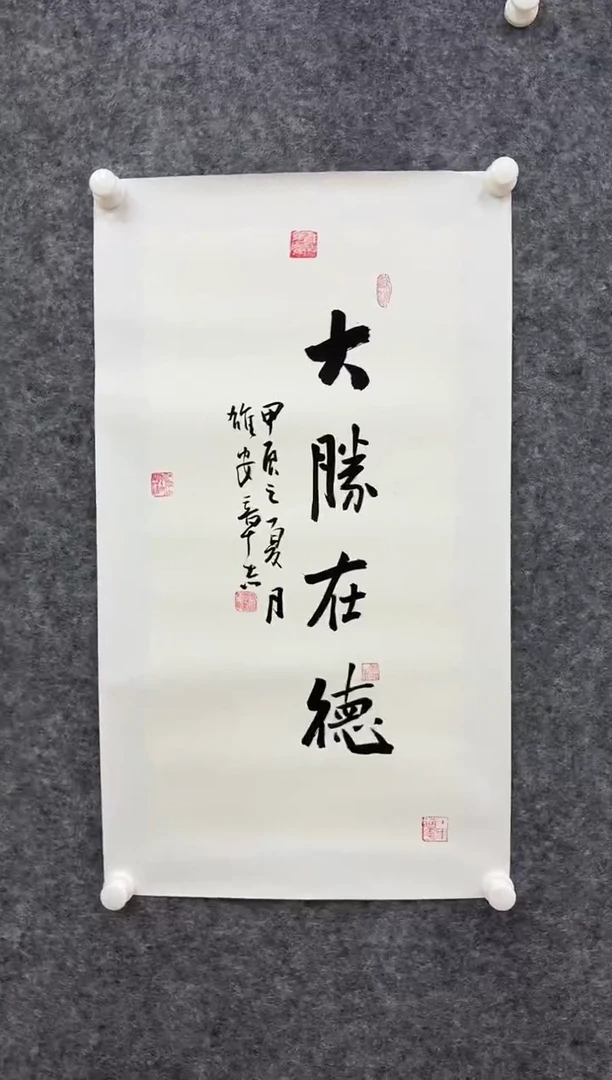 大勝在德
甲辰之夏月
雄安章志